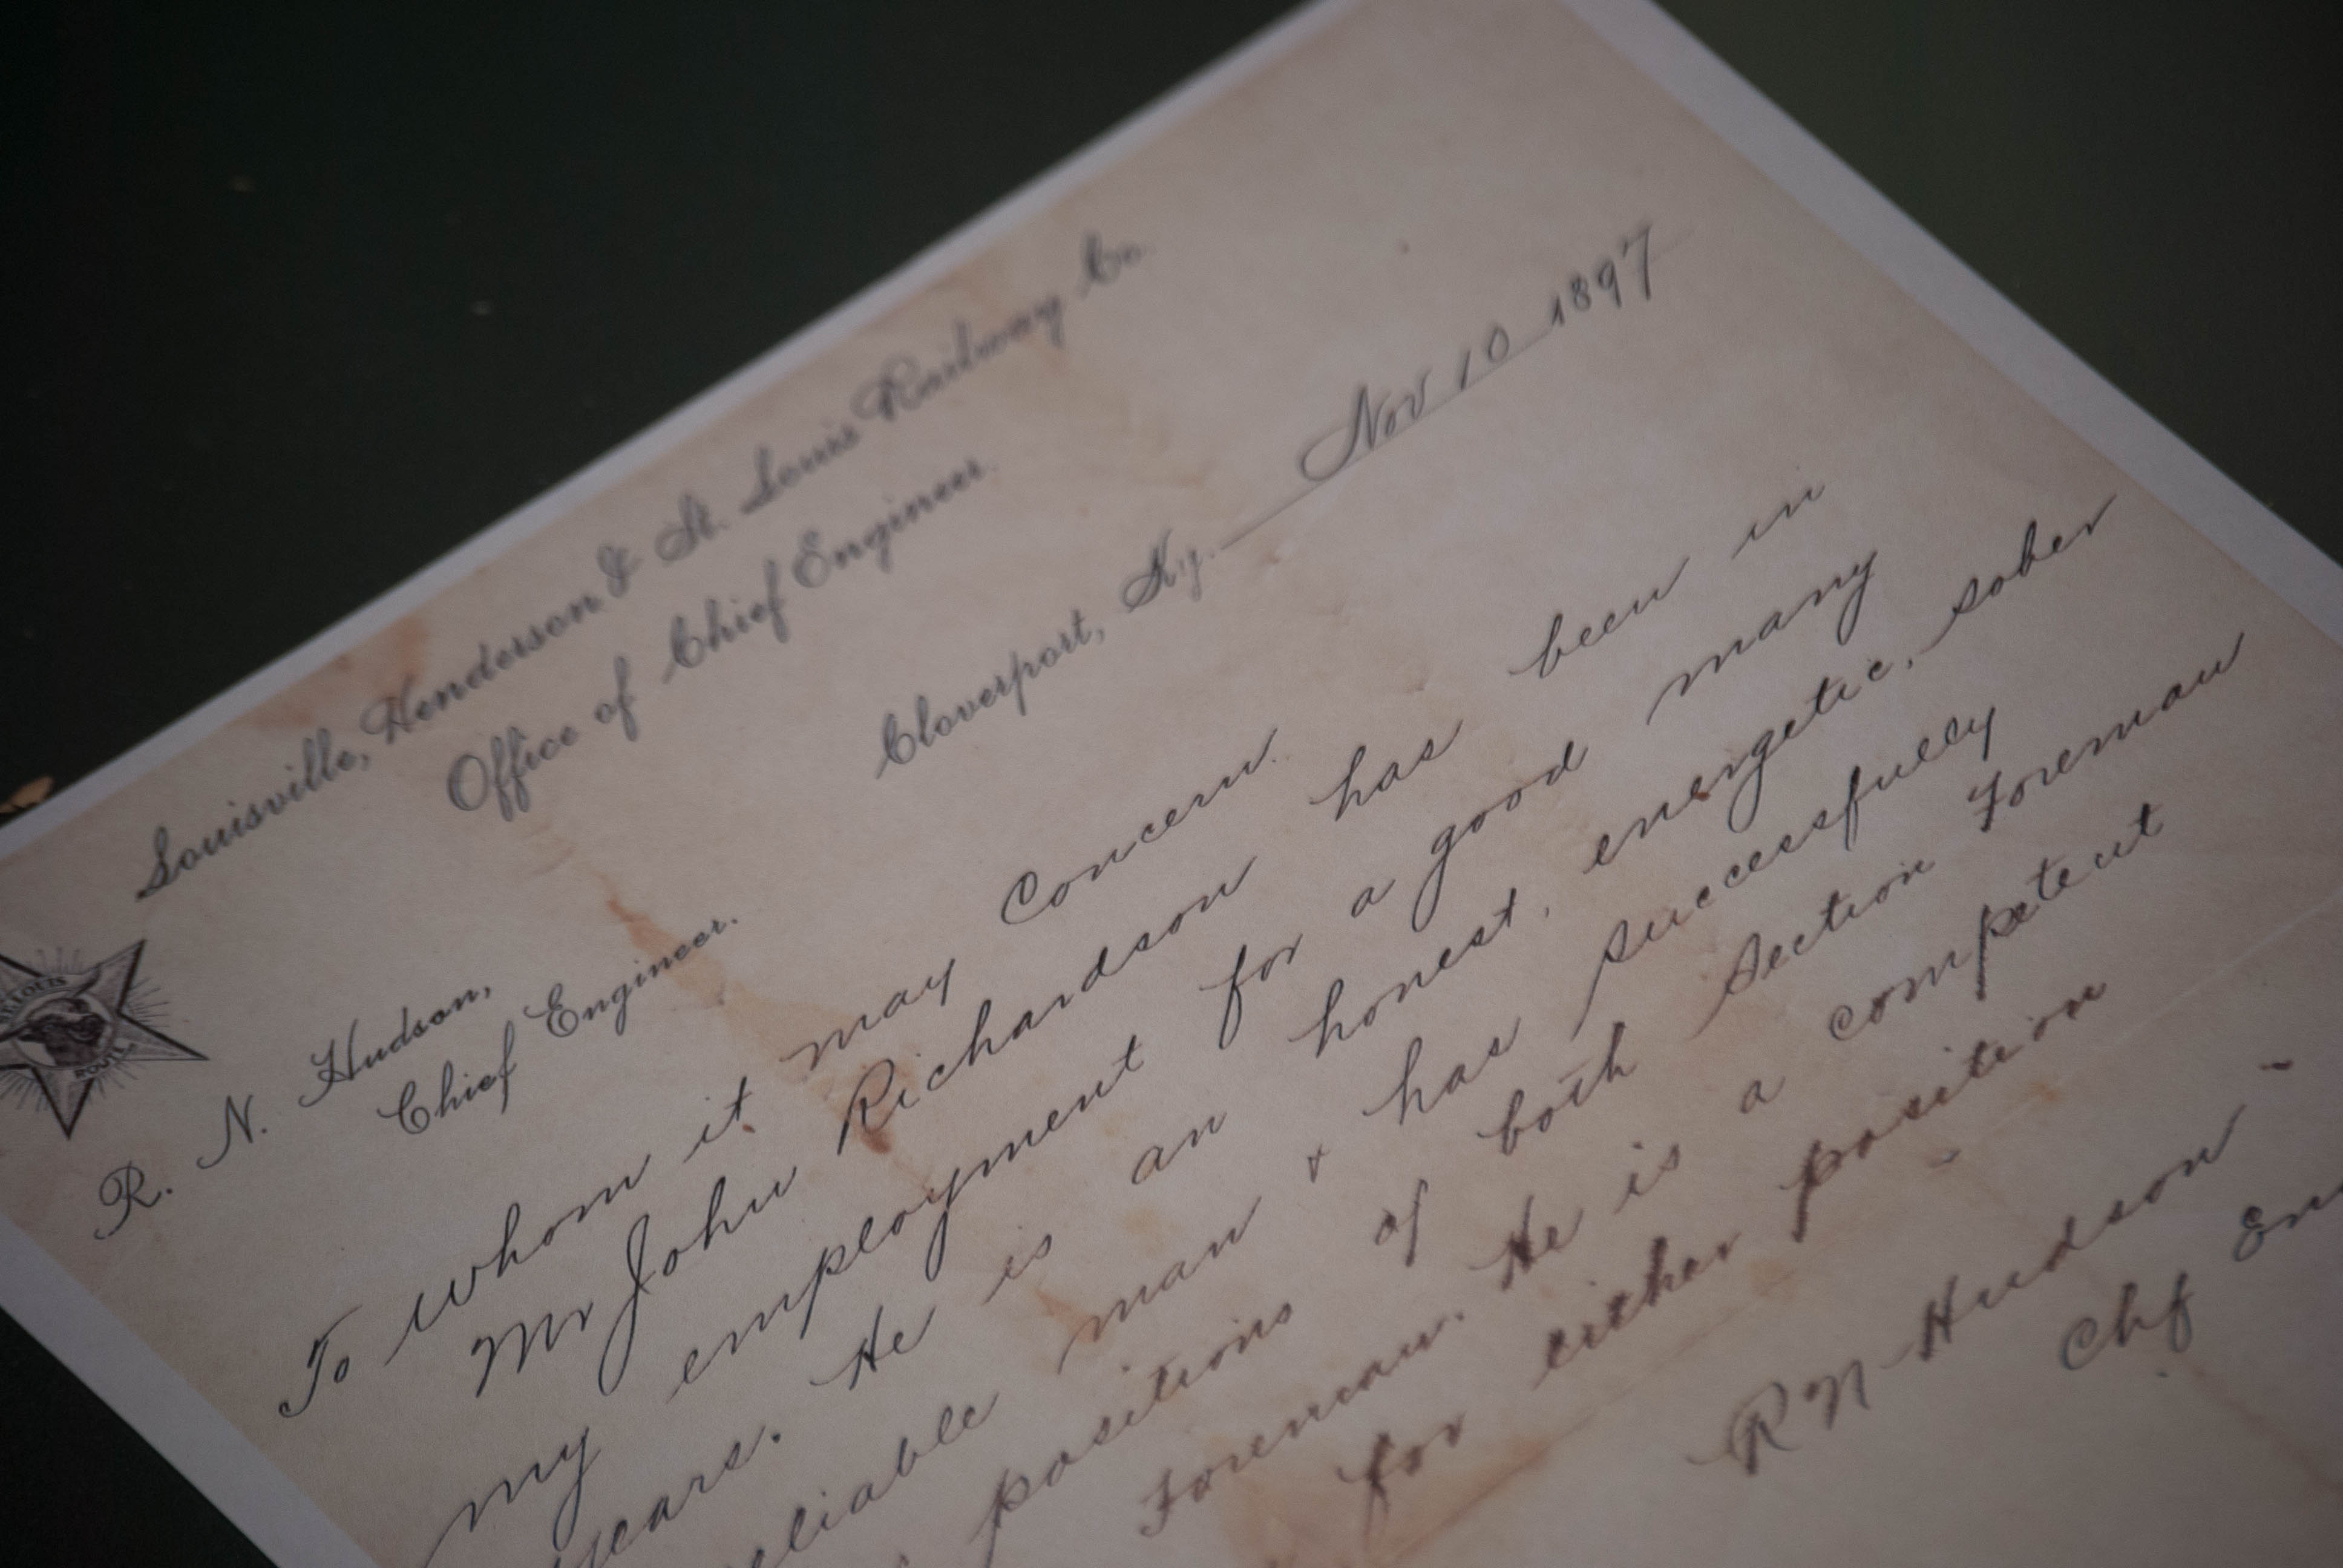 Louisville, Henderson & St. Louis Railway Co.
Office of Chief Engineer.
Cloverport, Ky. Nov 10 1897
ST. LOUIS
ROUTE.
R. N. Hudson,
Chief Engineer.
To whom it may Concern.
Mr John Richardson has been in
my employment for a good many
years. He is an honest, energetic, sober
reliable man & has successfully
positions of both Section Foreman
Foreman. He is a competent
for either position
RN Hudson
Chf En